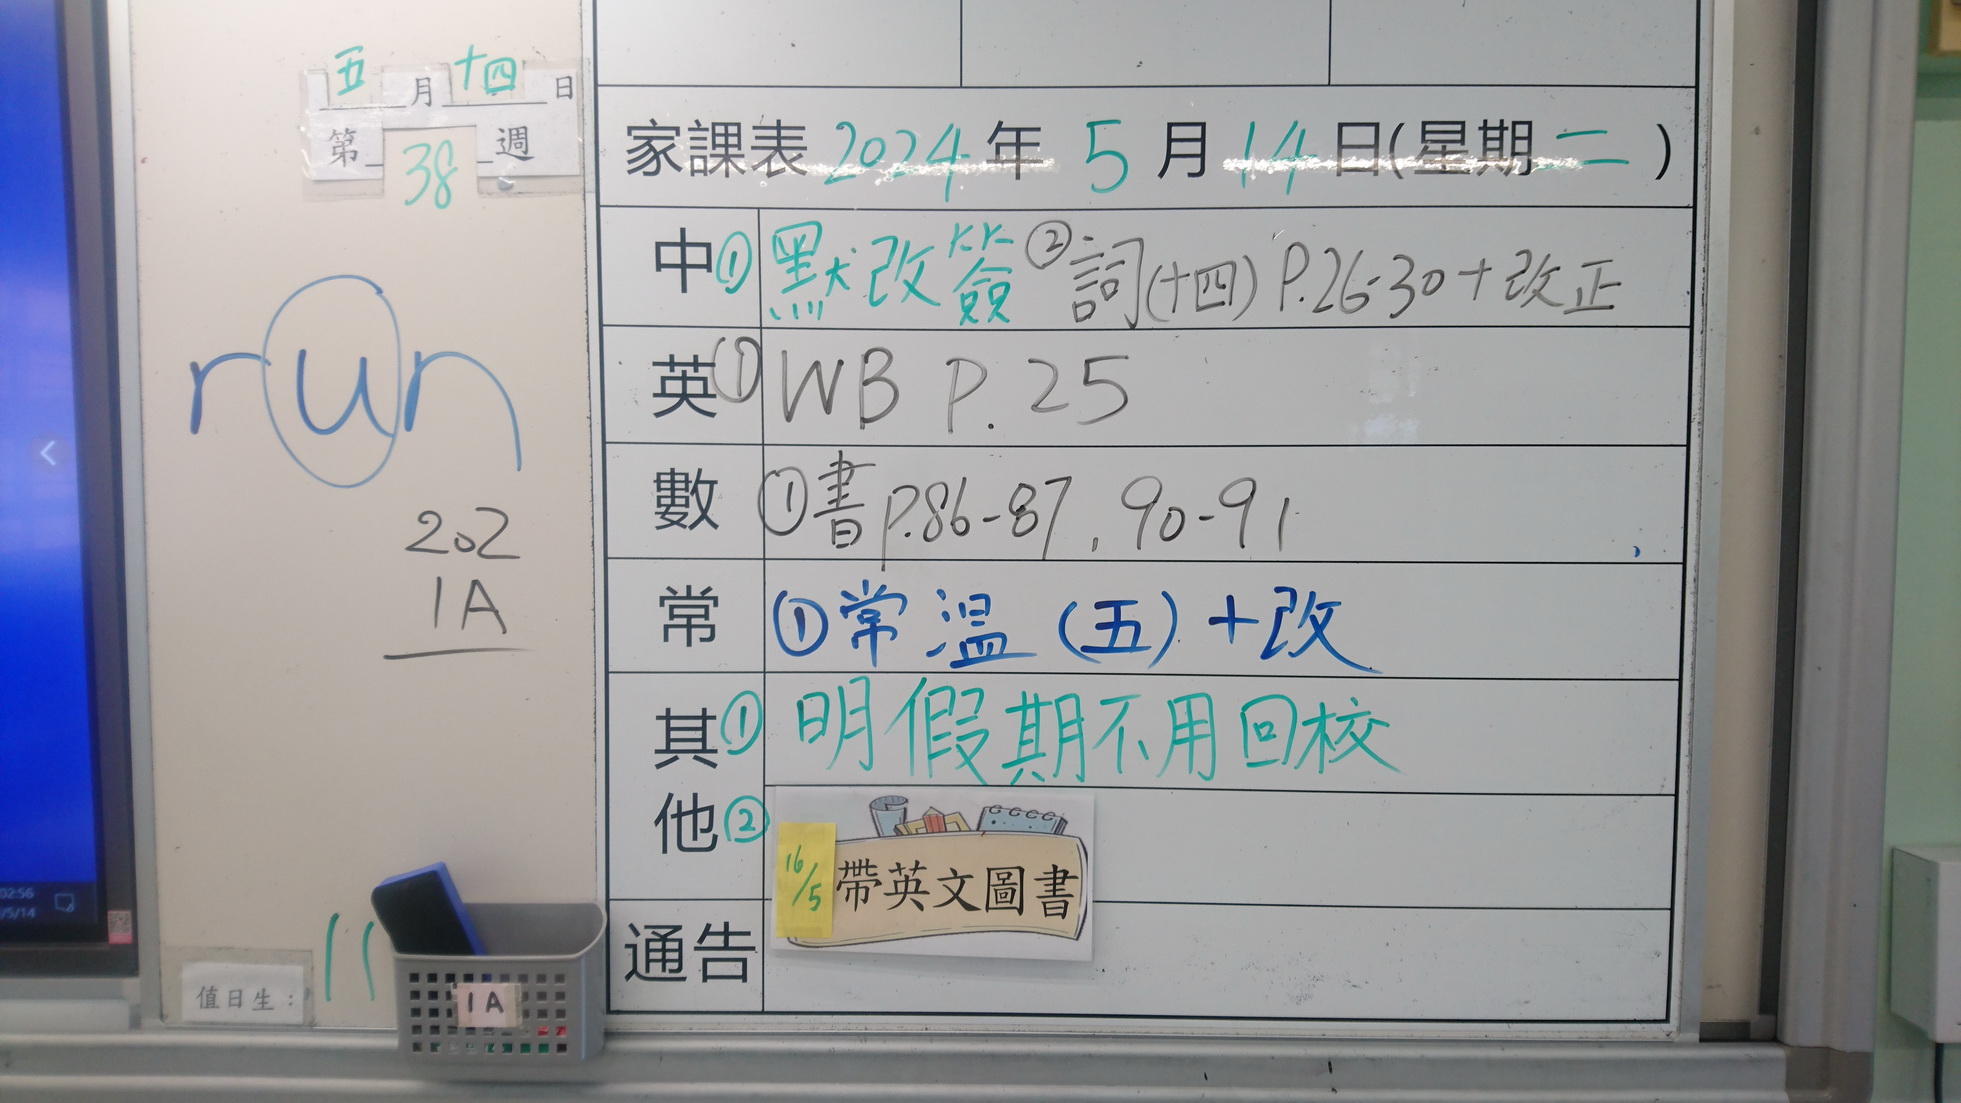 五月十四日
第38週
run
202
1A
值日生：11
1A
家課表 2024年 5月 14日(星期二)
中 ① 默改簽 ② 詞(十四) P.26-30+改正
英 ① WB P.25
數 ① 書 P.86-87, 90-91
常 ① 常溫(五)+改
其他 ① 明假期不用回校
② 16/5 帶英文圖書
通告
02:56
/5/14